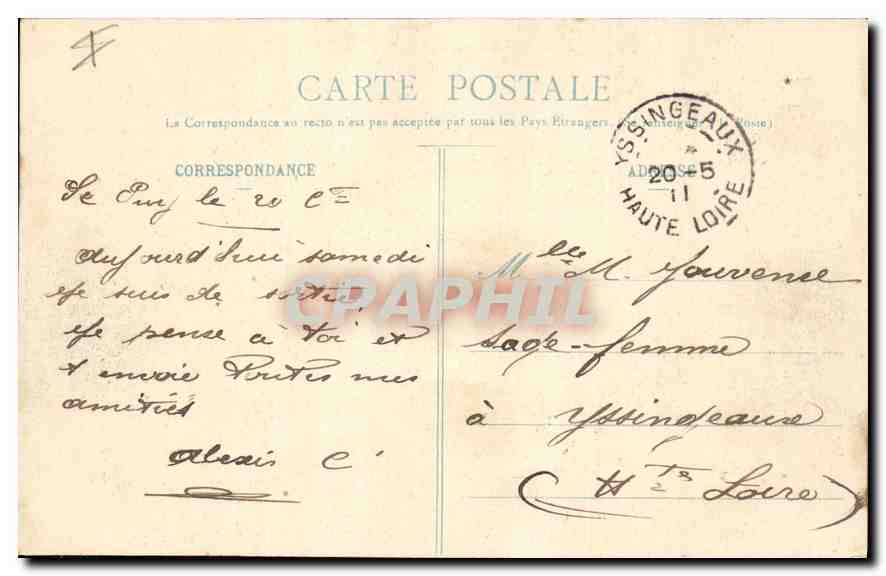 CARTE POSTALE
La Correspondance au recto n'est pas acceptée par tous les Pays Étrangers. (Se renseigner à la Poste)
CORRESPONDANCE
ADRESSE
YSSINGEAUX
20-5
11
HAUTE LOIRE
Le Puy le 20 Ct
Aujourd'hui samedi
je suis de sortie,
je pense à toi et
t envoie toutes mes
amitiés
Alexis C
Mlle M. Jouvence
sage-femme
à Yssindeaux
(Hte Loire)
CPAPHIL